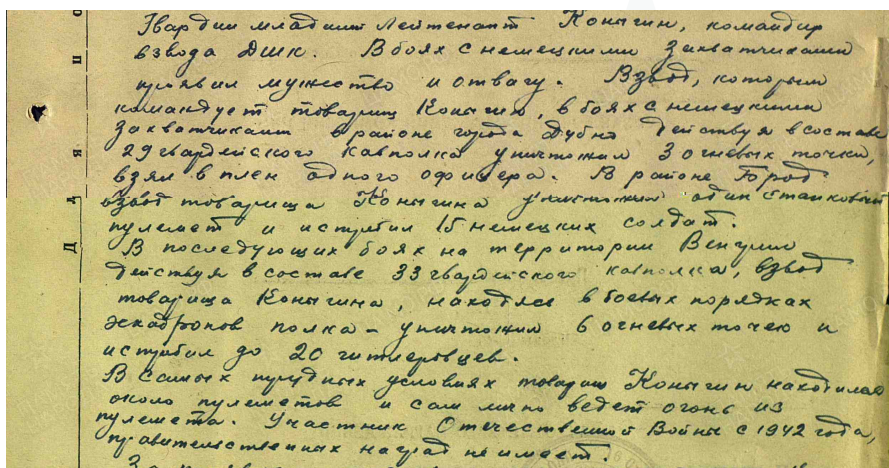 Гвардии младший Лейтенант Конычин, командир
взвода ДШК. В боях с немецкими захватчиками
проявил мужество и отвагу. Взвод, которым
командует товарищ Конычин, в боях с немецкими
захватчиками в районе города Дубно действуя в составе
29 гвардейского кавполка уничтожил 3 огневых точки,
взял в плен одного офицера. В районе Брод
взвод товарища Конычина уничтожил один станковый
пулемет и истребил 15 немецких солдат.
В последующих боях на территории Венгрии
действуя в составе 33 гвардейского кавполка, взвод
товарища Конычина, находясь в боевых порядках
эскадронов полка - уничтожил 6 огневых точек и
истребил до 20 гитлеровцев.
В самых трудных условиях товарищ Конычин находился
около пулеметов и сам лично ведет огонь из
пулемета. Участник Отечественной Войны с 1942 года,
правительственных наград не имеет.
Для